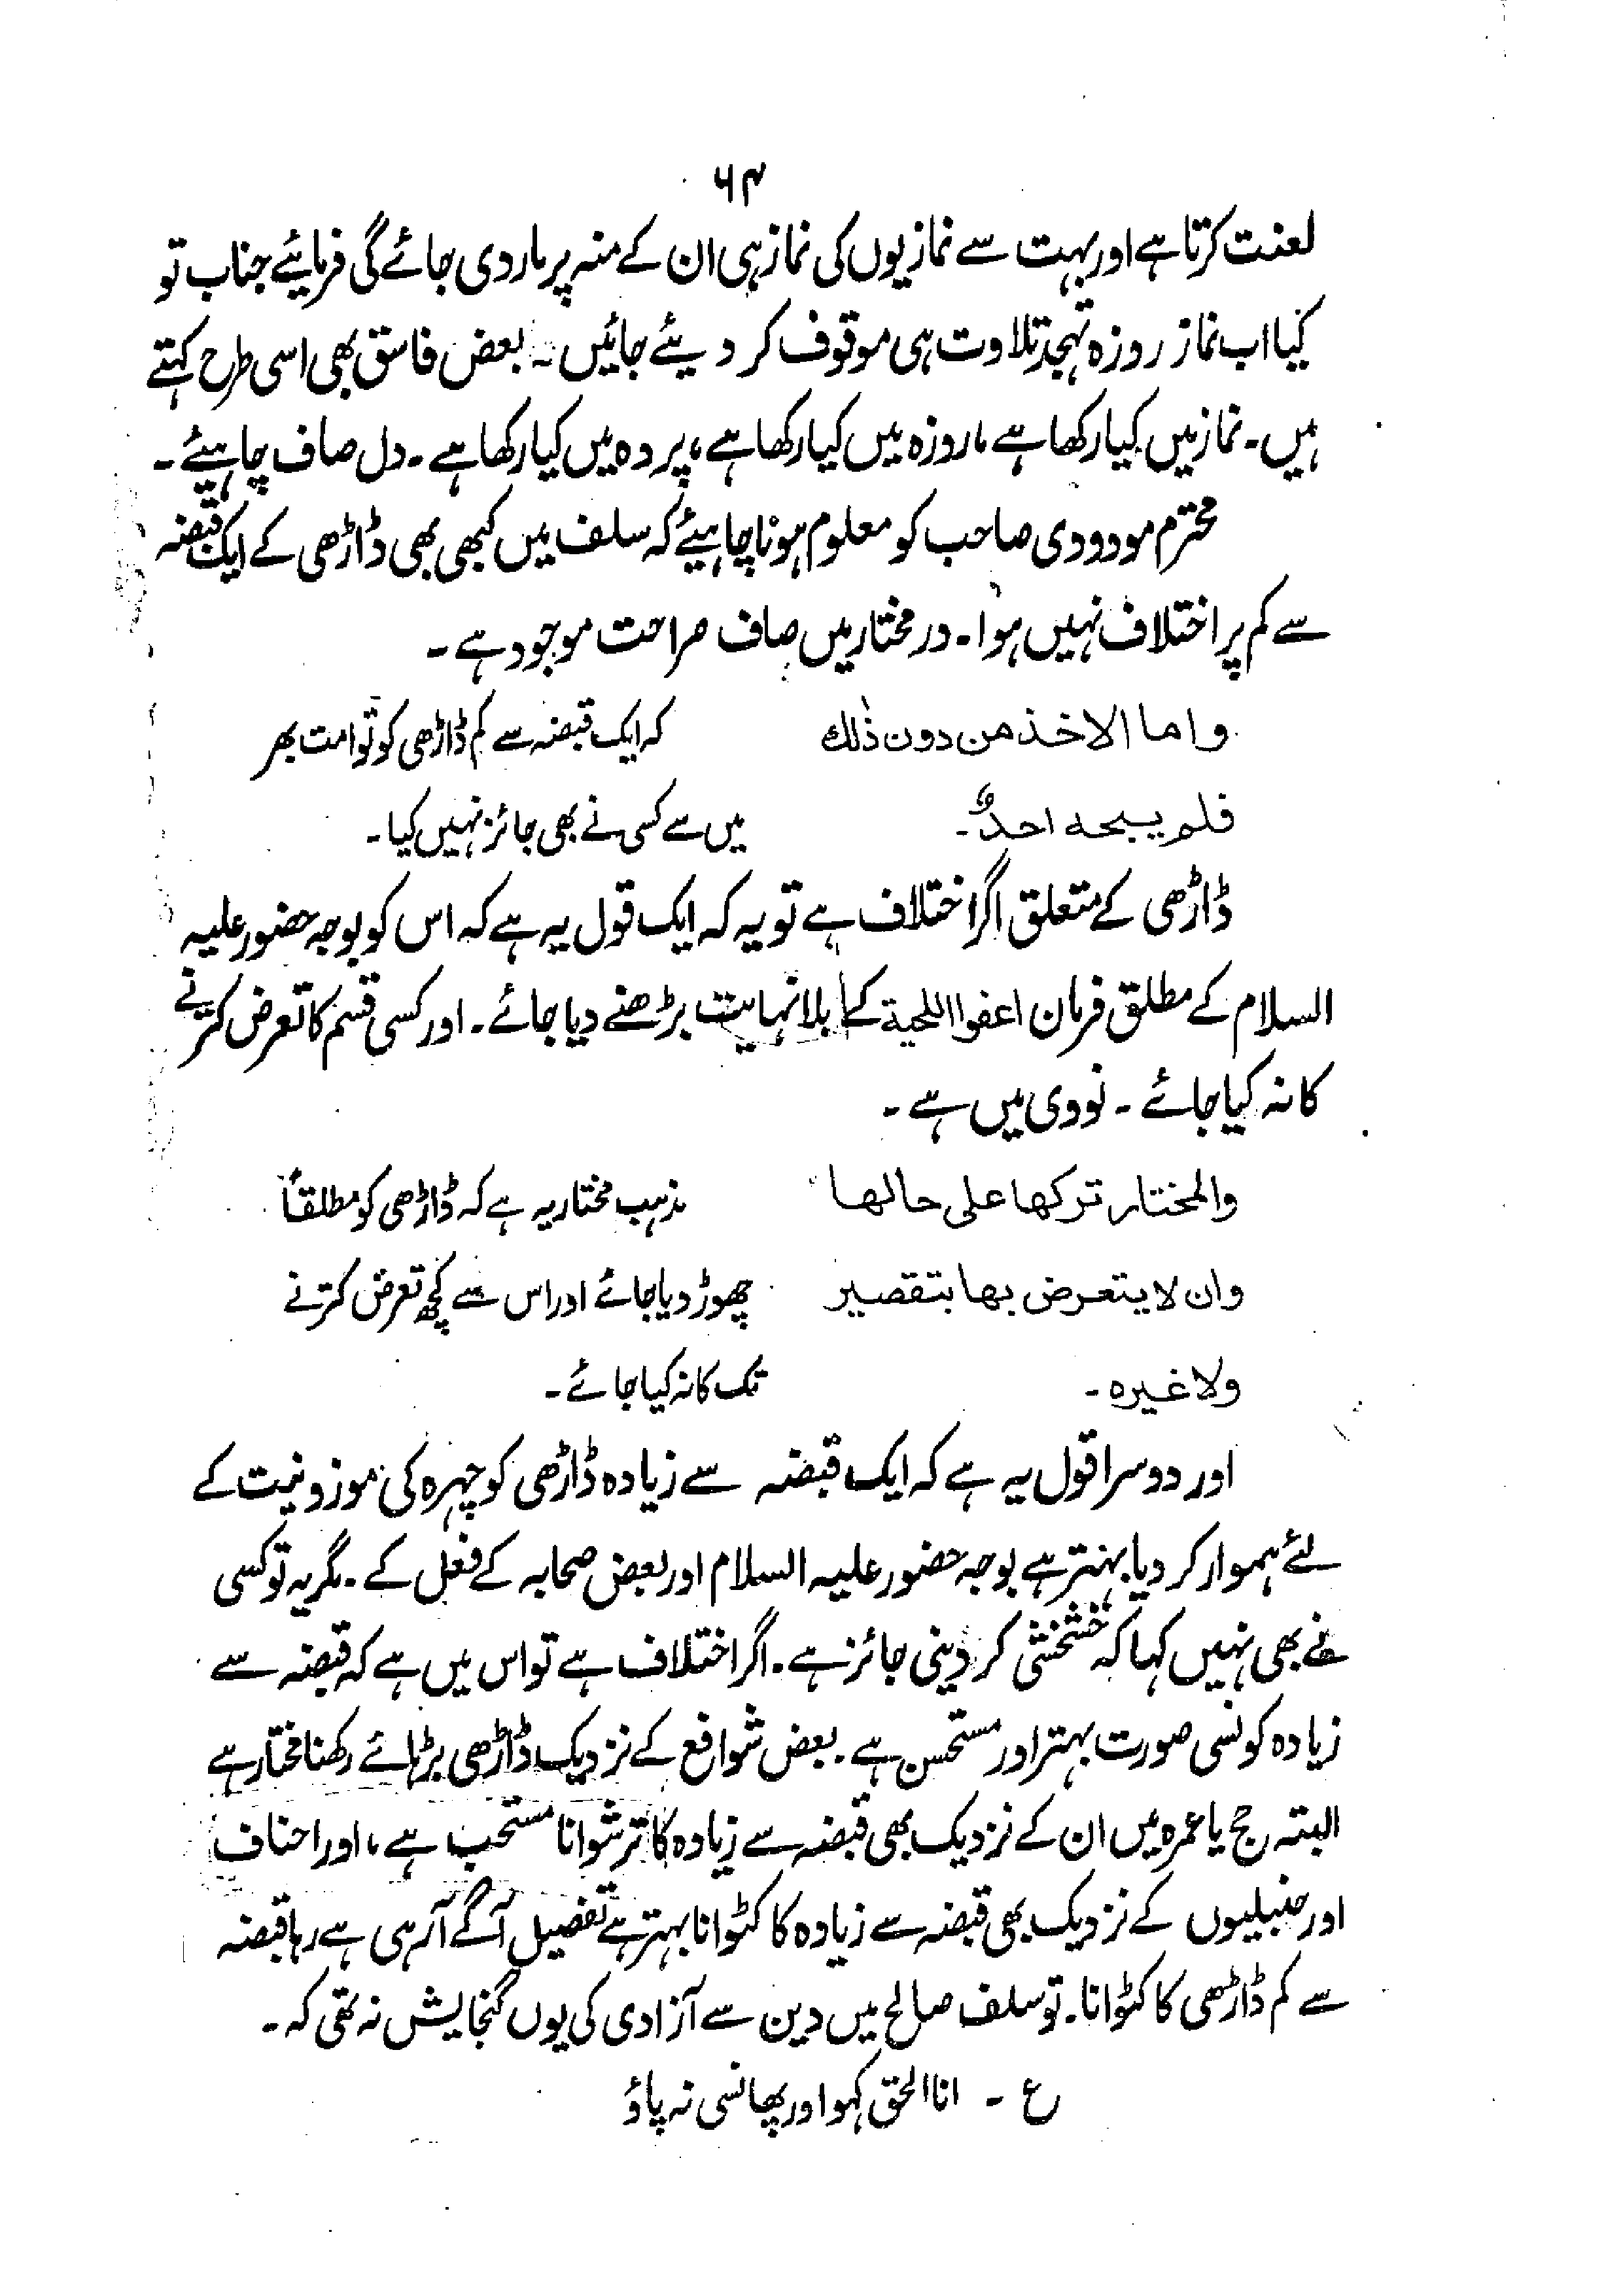 ۶۴
لعنت کرتا ہے اور بہت سے نمازیوں کی نماز ہی ان کے منہ پر مار دی جائے گی فرمائیے جناب تو
کیا اب نماز روزہ تہجد تلاوت ہی موقوف کر دیئے جائیں ۔ بعض فاسق بھی اسی طرح کہتے
ہیں ۔ نماز میں کیا رکھا ہے ، روزہ میں کیا رکھا ہے ، پردہ میں کیا رکھا ہے ۔ دل صاف چاہیئے ۔
محترم مودودی صاحب کو معلوم ہونا چاہیئے کہ سلف میں کبھی بھی ڈاڑھی کے ایک قبضہ
سے کم پر اختلاف نہیں ہوا ۔ در مختار میں صاف صراحت موجود ہے ۔
واما الاخذ من دون ذٰلك کہ ایک قبضہ سے کم ڈاڑھی کو تو امت بھر
فلم یبحه احدٌ ۔ میں سے کسی نے بھی جائز نہیں کیا ۔
ڈاڑھی کے متعلق اگر اختلاف ہے تو یہ کہ ایک قول یہ ہے کہ اس کو بوجہ حضور علیہ
السلام کے مطلق فرمان اعفوا اللحیة کے بلا نہایت بڑھنے دیا جائے ۔ اور کسی قسم کا تعرض کترنے
کا نہ کیا جائے ۔ نووی میں ہے ۔
والمختار ترکها علی حالها مذہب مختار یہ ہے کہ ڈاڑھی کو مطلقاً
وان لا یتعرض بها بتقصیر چھوڑ دیا جائے اور اس سے کچھ تعرض کترنے
ولا غیره ۔ تک کا نہ کیا جائے ۔
اور دوسرا قول یہ ہے کہ ایک قبضہ سے زیادہ ڈاڑھی کو چہرہ کی موزونیت کے
لئے ہموار کر دیا بہتر ہے بوجہ حضور علیہ السلام اور بعض صحابہ کے فعل کے ۔ مگر یہ تو کسی
نے بھی نہیں کہا کہ خشخشی کر دینی جائز ہے ۔ اگر اختلاف ہے تو اس میں ہے کہ قبضہ سے
زیادہ کونسی صورت بہتر اور مستحسن ہے ۔ بعض شوافع کے نزدیک ڈاڑھی بڑہائے رکھنا مختار ہے
البتہ حج یا عمرہ میں ان کے نزدیک بھی قبضہ سے زیادہ کا ترشوانا مستحب ہے ، اور احناف
اور حنبلیوں کے نزدیک بھی قبضہ سے زیادہ کا کٹوانا بہتر ہے تفصیل آگے آ رہی ہے رہا قبضہ
سے کم ڈاڑھی کا کٹوانا ۔ تو سلف صالح میں دین سے آزادی کی یوں گنجایش نہ تھی کہ ۔
ع ۔ انا الحق کہو اور پھانسی نہ پاؤ